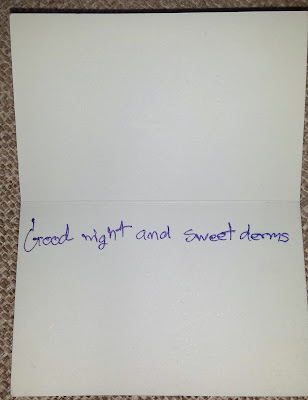 Good night and sweet derms